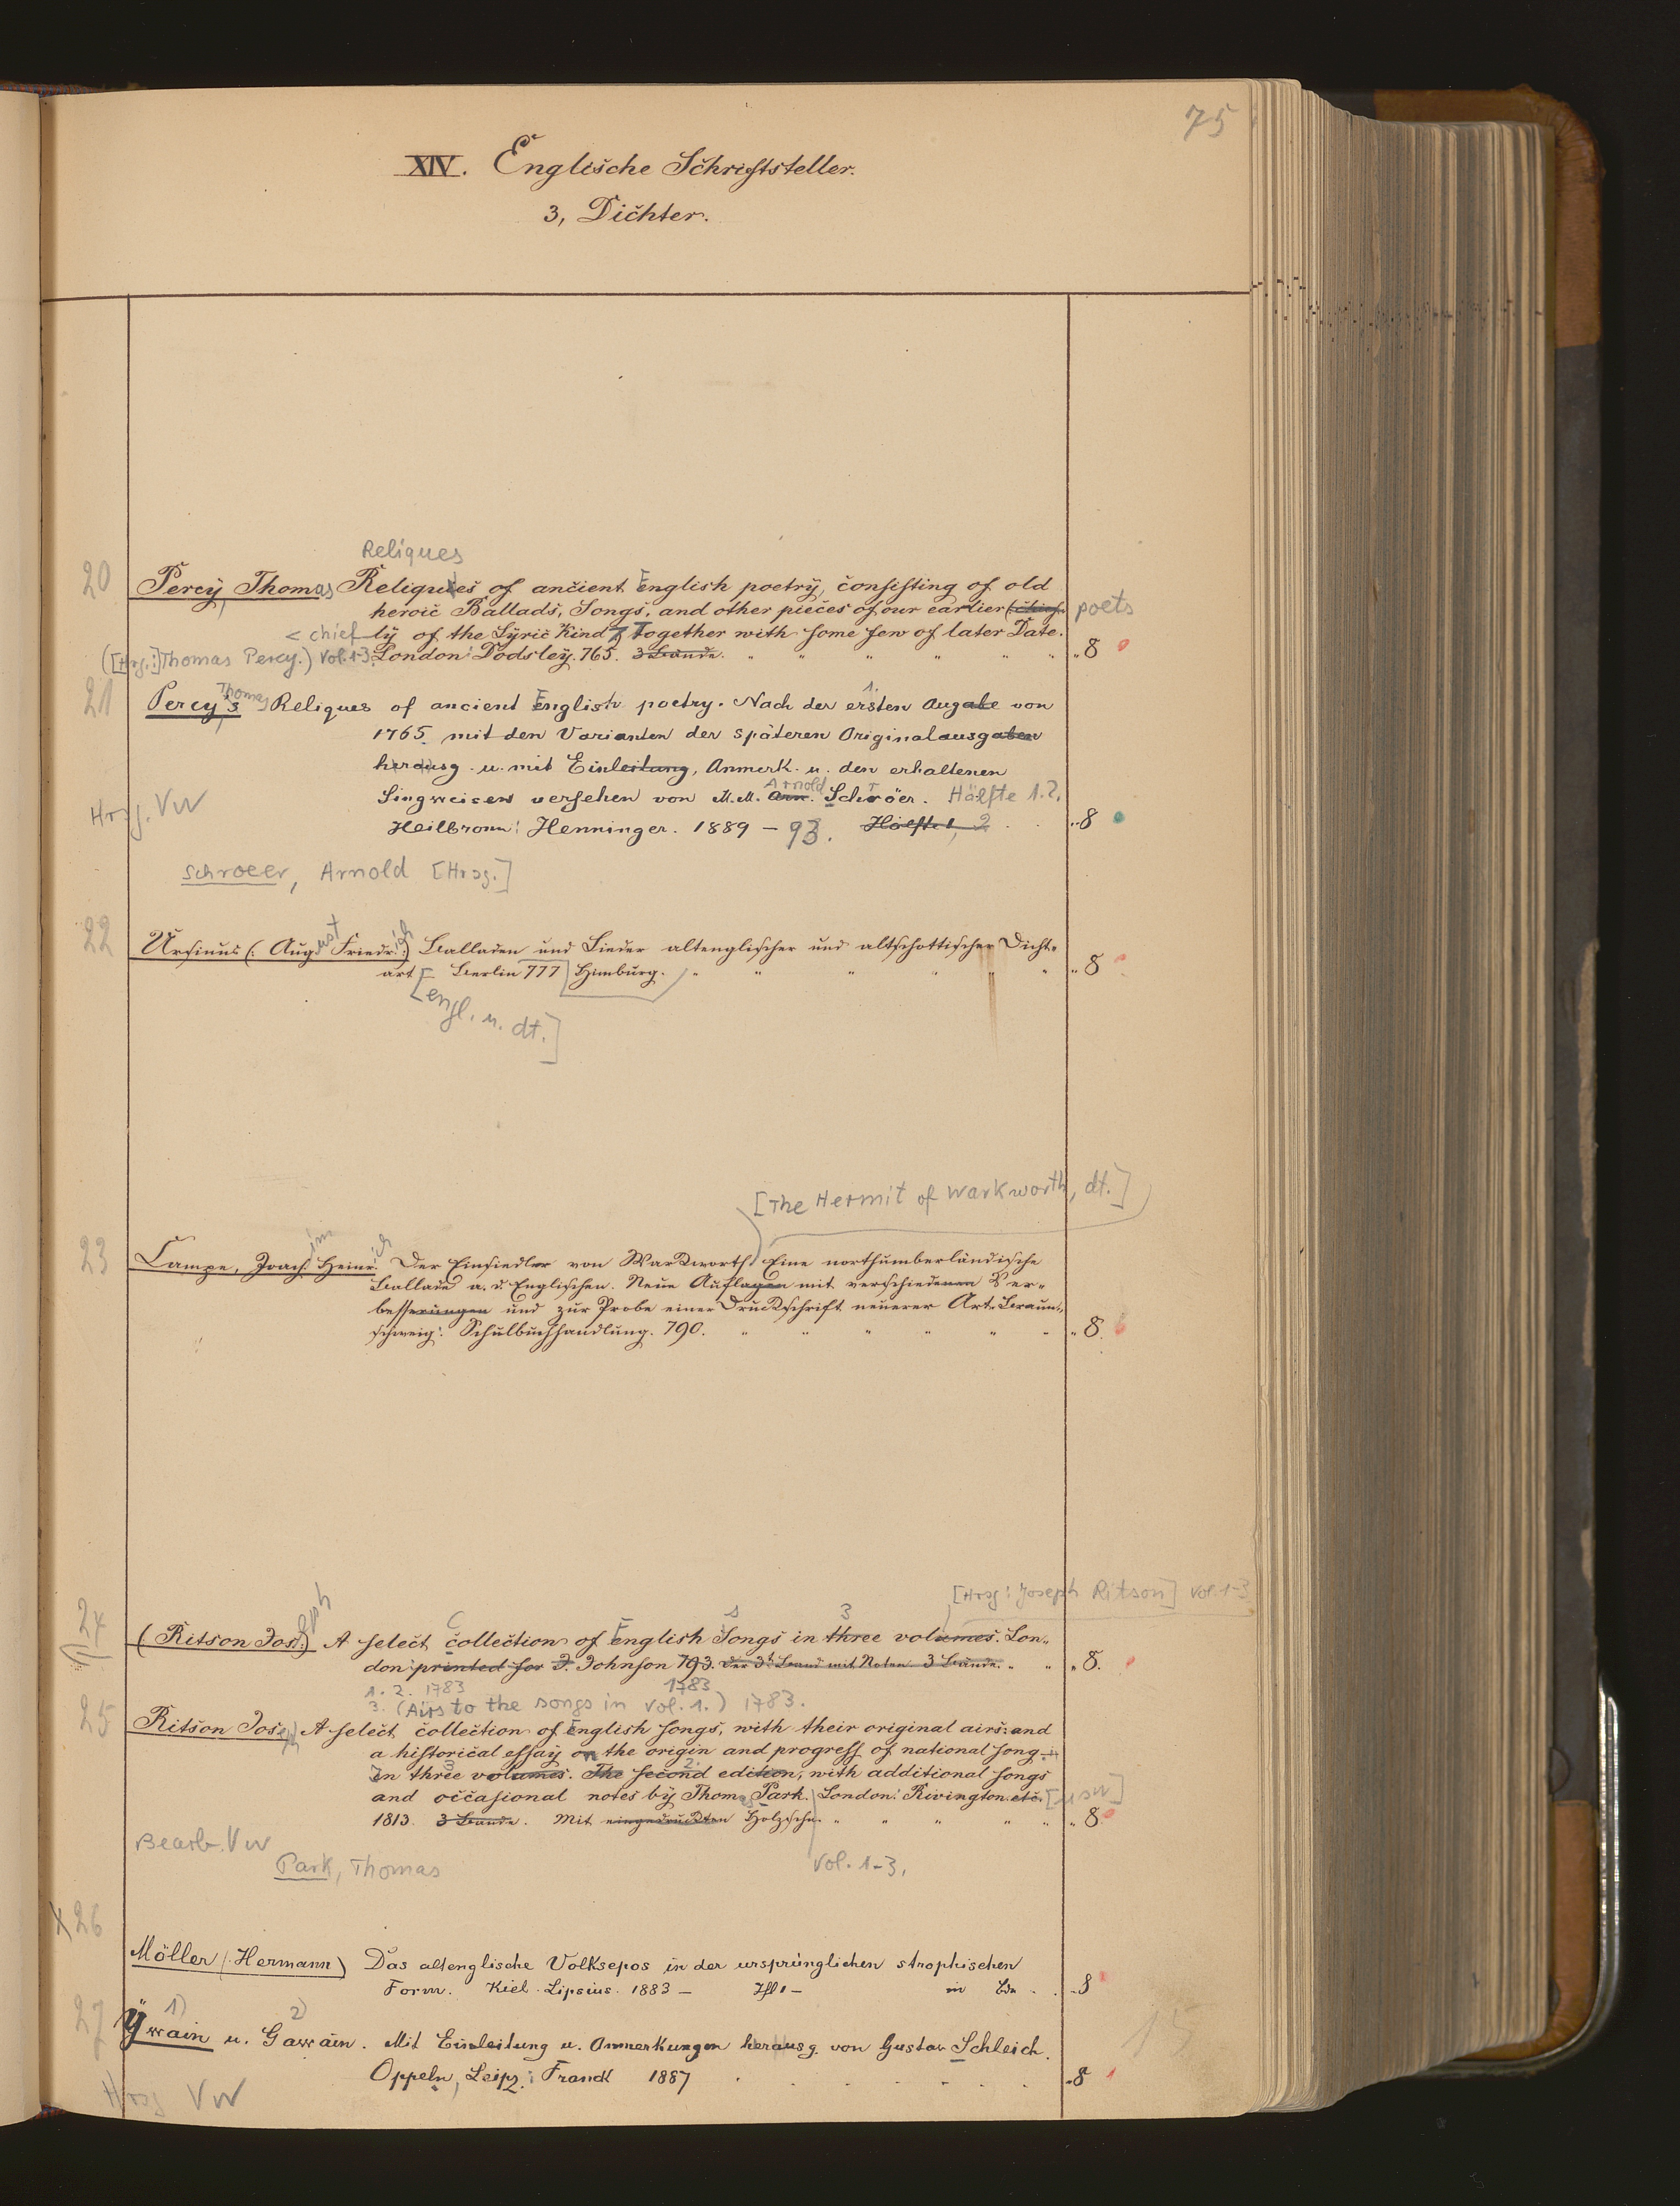 75
XIV. Englische Schriftsteller.
3, Dichter.
Reliques
20 Percy, Thomas Reliques of ancient English poetry, consisting of old
heroic Ballads, Songs, and other pieces of our earlier (chief- poets
< chief ly of the Lyric Kind, Together with some few of later Date.
([Hrsg.:] Thomas Percy.) Vol. 1-3. London: Dodsley. 765. 3 Bände. " 8
21 Percy's Thomas Reliques of ancient English poetry. Nach der ersten 1. Ausgabe von
1765 mit den Varianten der späteren Originalausgaben
herausg. u. mit Einleitung, Anmerk. u. den erhaltenen
Singweisen versehen von M. M. Arn. Arnold Schröer. Hälfte 1.2.
Hrsg. VW
Heilbronn: Henninger. 1889 - 93. Hälfte 1, 2 " 8
Schroeer, Arnold [Hrsg.]
22 Ursinus (: August Friedrich :) Balladen und Lieder altenglischer und altschottischer Dicht-
art Berlin 777 Himburg. " 8
[engl. u. dt.]
[The Hermit of Warkworth, dt.]
23 Campe, Joachim Heinrich. Der Einsiedler von Warkworth. Eine northumberländische
Ballade a. d. Englischen. Neue Auflagen mit verschiedenen Ver-
besserungen und zur Probe einer Druckschrift neuerer Art. Braun-
schweig: Schulbuchhandlung. 790. " 8.
[Hrsg: Joseph Ritson] Vol. 1-3
24 (Ritson Joseph) A select collection of English Songs in three 3 volumes. Lon-
don: printed for J. Johnson 793. der 3t Band mit Noten. 3 Bände. " 8.
1. 2. 1783 1783
3. (Airs to the songs in vol. 1.) 1783.
25 Ritson Joseph A select collection of English songs, with their original airs: and
a historical essay on the origin and progress of national song.
In three 3 volumes. The second 2. edition, with additional songs
and occasional notes by Thomas Park. London: Rivington etc. [u.sw]
1813. 3 Bände. Mit eingedruckten Holzschn. " 8.
Bearb. VW
Park, Thomas Vol. 1-3.
x 26
Möller (: Hermann) Das altenglische Volksepos in der ursprünglichen strophischen
Form. Kiel. Lipsius. 1883 - Thl 1 - in Bdn . . 8
27 Ywain 1) u. Gawain 2). Mit Einleitung u. Anmerkungen herausg. von Gustav Schleich.
Oppeln, Leipz.: Franck 1887 8
15
Hrsg VW